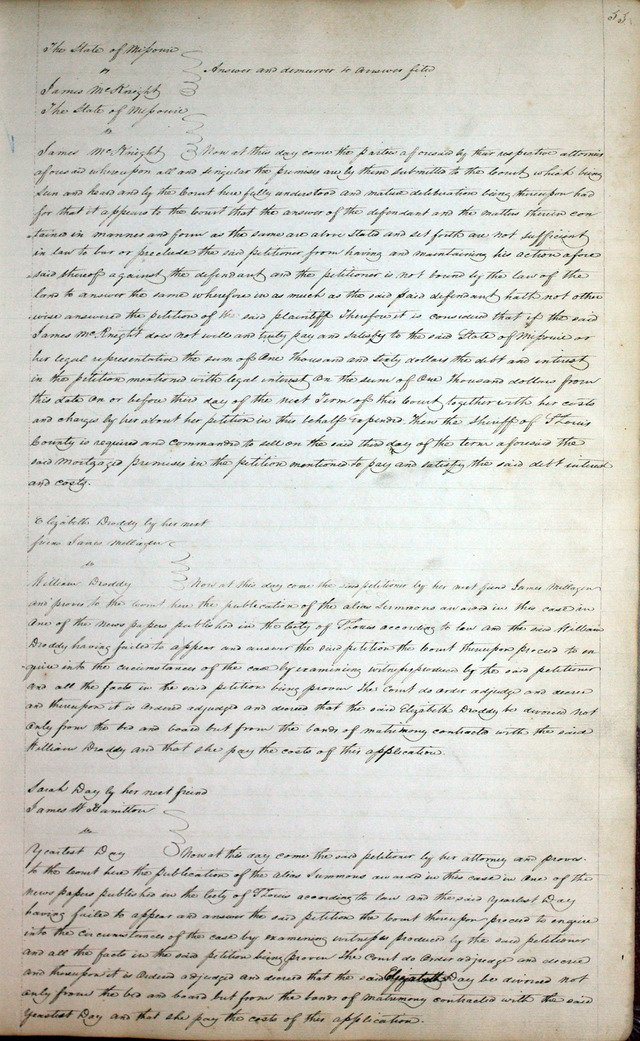 55.
The State of Missouri
vs Answer and demurrer to answer filed
James McKnight
The State of Missouri
vs
James McKnight Now at this day come the parties aforesaid by their respective attornies
aforesaid whereupon all and singular the premises are by them submitted to the Court which being
seen and heard and by the Court here fully understood and mature deliberation being thereupon had
for that it appears to the Court that the answer of the defendant and the matters therein con
tained in manner and form as the same are above stated and set forth are not sufficient
in law to bar or preclude the said petitioner from having and maintaining his action afore
said thereof against the defendant and the petitioner is not bound by the law of the
land to answer the same wherefore in as much as the said defendant hath not other
wise answered the petition of the said plaintiff Therefore it is considered that if the said
James McKnight does not well and truly pay and satisfy to the said State of Missouri or
her legal representative the sum of One thousand and sixty dollars the debt and interest
in the petition mentioned with legal interest on the sum of One thousand dollars from
this date on or before third day of the next Term of this Court together with her costs
and charges by her about her petition in this behalf expended Then the Sheriff of St Louis
County is required and commanded to sell on the said third day of the term aforesaid the
said Mortgaged premises in the petition mentioned to pay and satisfy the said debt interest
and costs.
Elizabeth Droddy by her next
friend James
vs
William Droddy Now at this day come the said petitioner by her next friend James
and proves to the Court here the publication of the alias Summons awarded in this case in
one of the News papers published in the City of St Louis according to law and the said William
Droddy having failed to appear and answer the said petition the Court thereupon proceed to en
quire into the circumstances of the case by examining witnesses produced by the said petitioner
and all the facts in the said petition being proven The Court do order adjudge and decree
and thereupon it is Ordered adjudged and decreed that the said Elizabeth Droddy be divorced not
only from the bed and board but from the bonds of matrimony contracted with the said
William Droddy and that she pay the costs of this application.
Sarah Day by her next friend
James W Hamilton
vs
Yearlest Day Now at this day come the said petitioner by her attorney and proves
to the Court here the publication of the alias Summons awarded in this case in one of the
News papers published in the City of St Louis according to law and the said Yearlest Day
having failed to appear and answer the said petition the Court thereupon proceed to enquire
into the circumstances of the case by examining witnesses produced by the said petitioner
and all the facts in the said petition being proven The Court do Order adjudge and decree
and thereupon it is Ordered adjudged and decreed that the said Elizabeth Day be divorced not
only from the bed and board but from the bonds of Matrimony contracted with the said
Yearlest Day and that she pay the costs of this application.